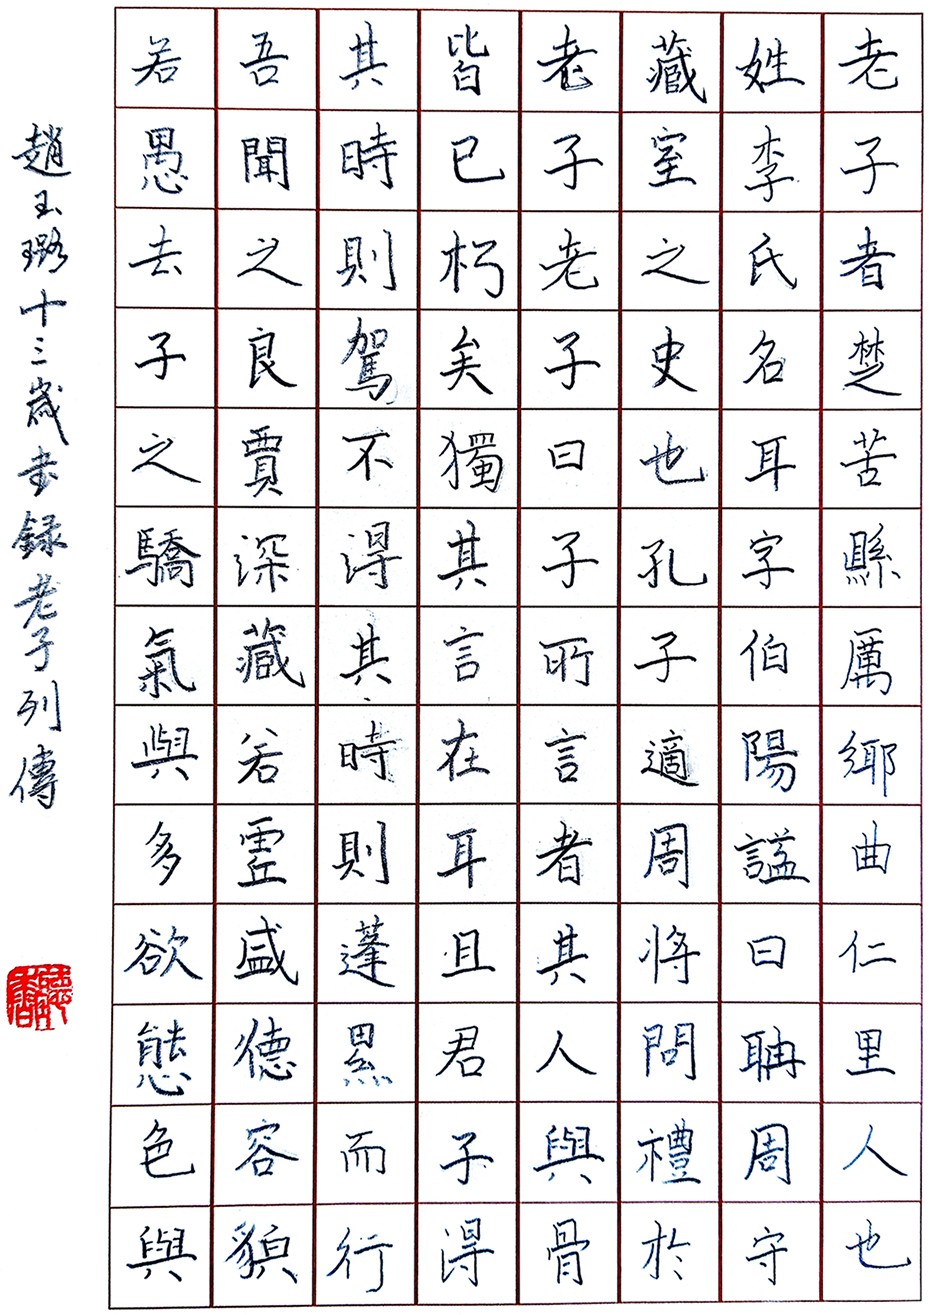 老子者楚苦縣厲鄉曲仁里人也
姓李氏名耳字伯陽謚曰聃周守
藏室之史也孔子適周將問禮於
老子老子曰子所言者其人與骨
皆已朽矣獨其言在耳且君子得
其時則駕不得其時則蓬累而行
吾聞之良賈深藏若虛盛德容貌
若愚去子之驕氣與多欲態色與
趙玉璐十三歲書錄老子列傳